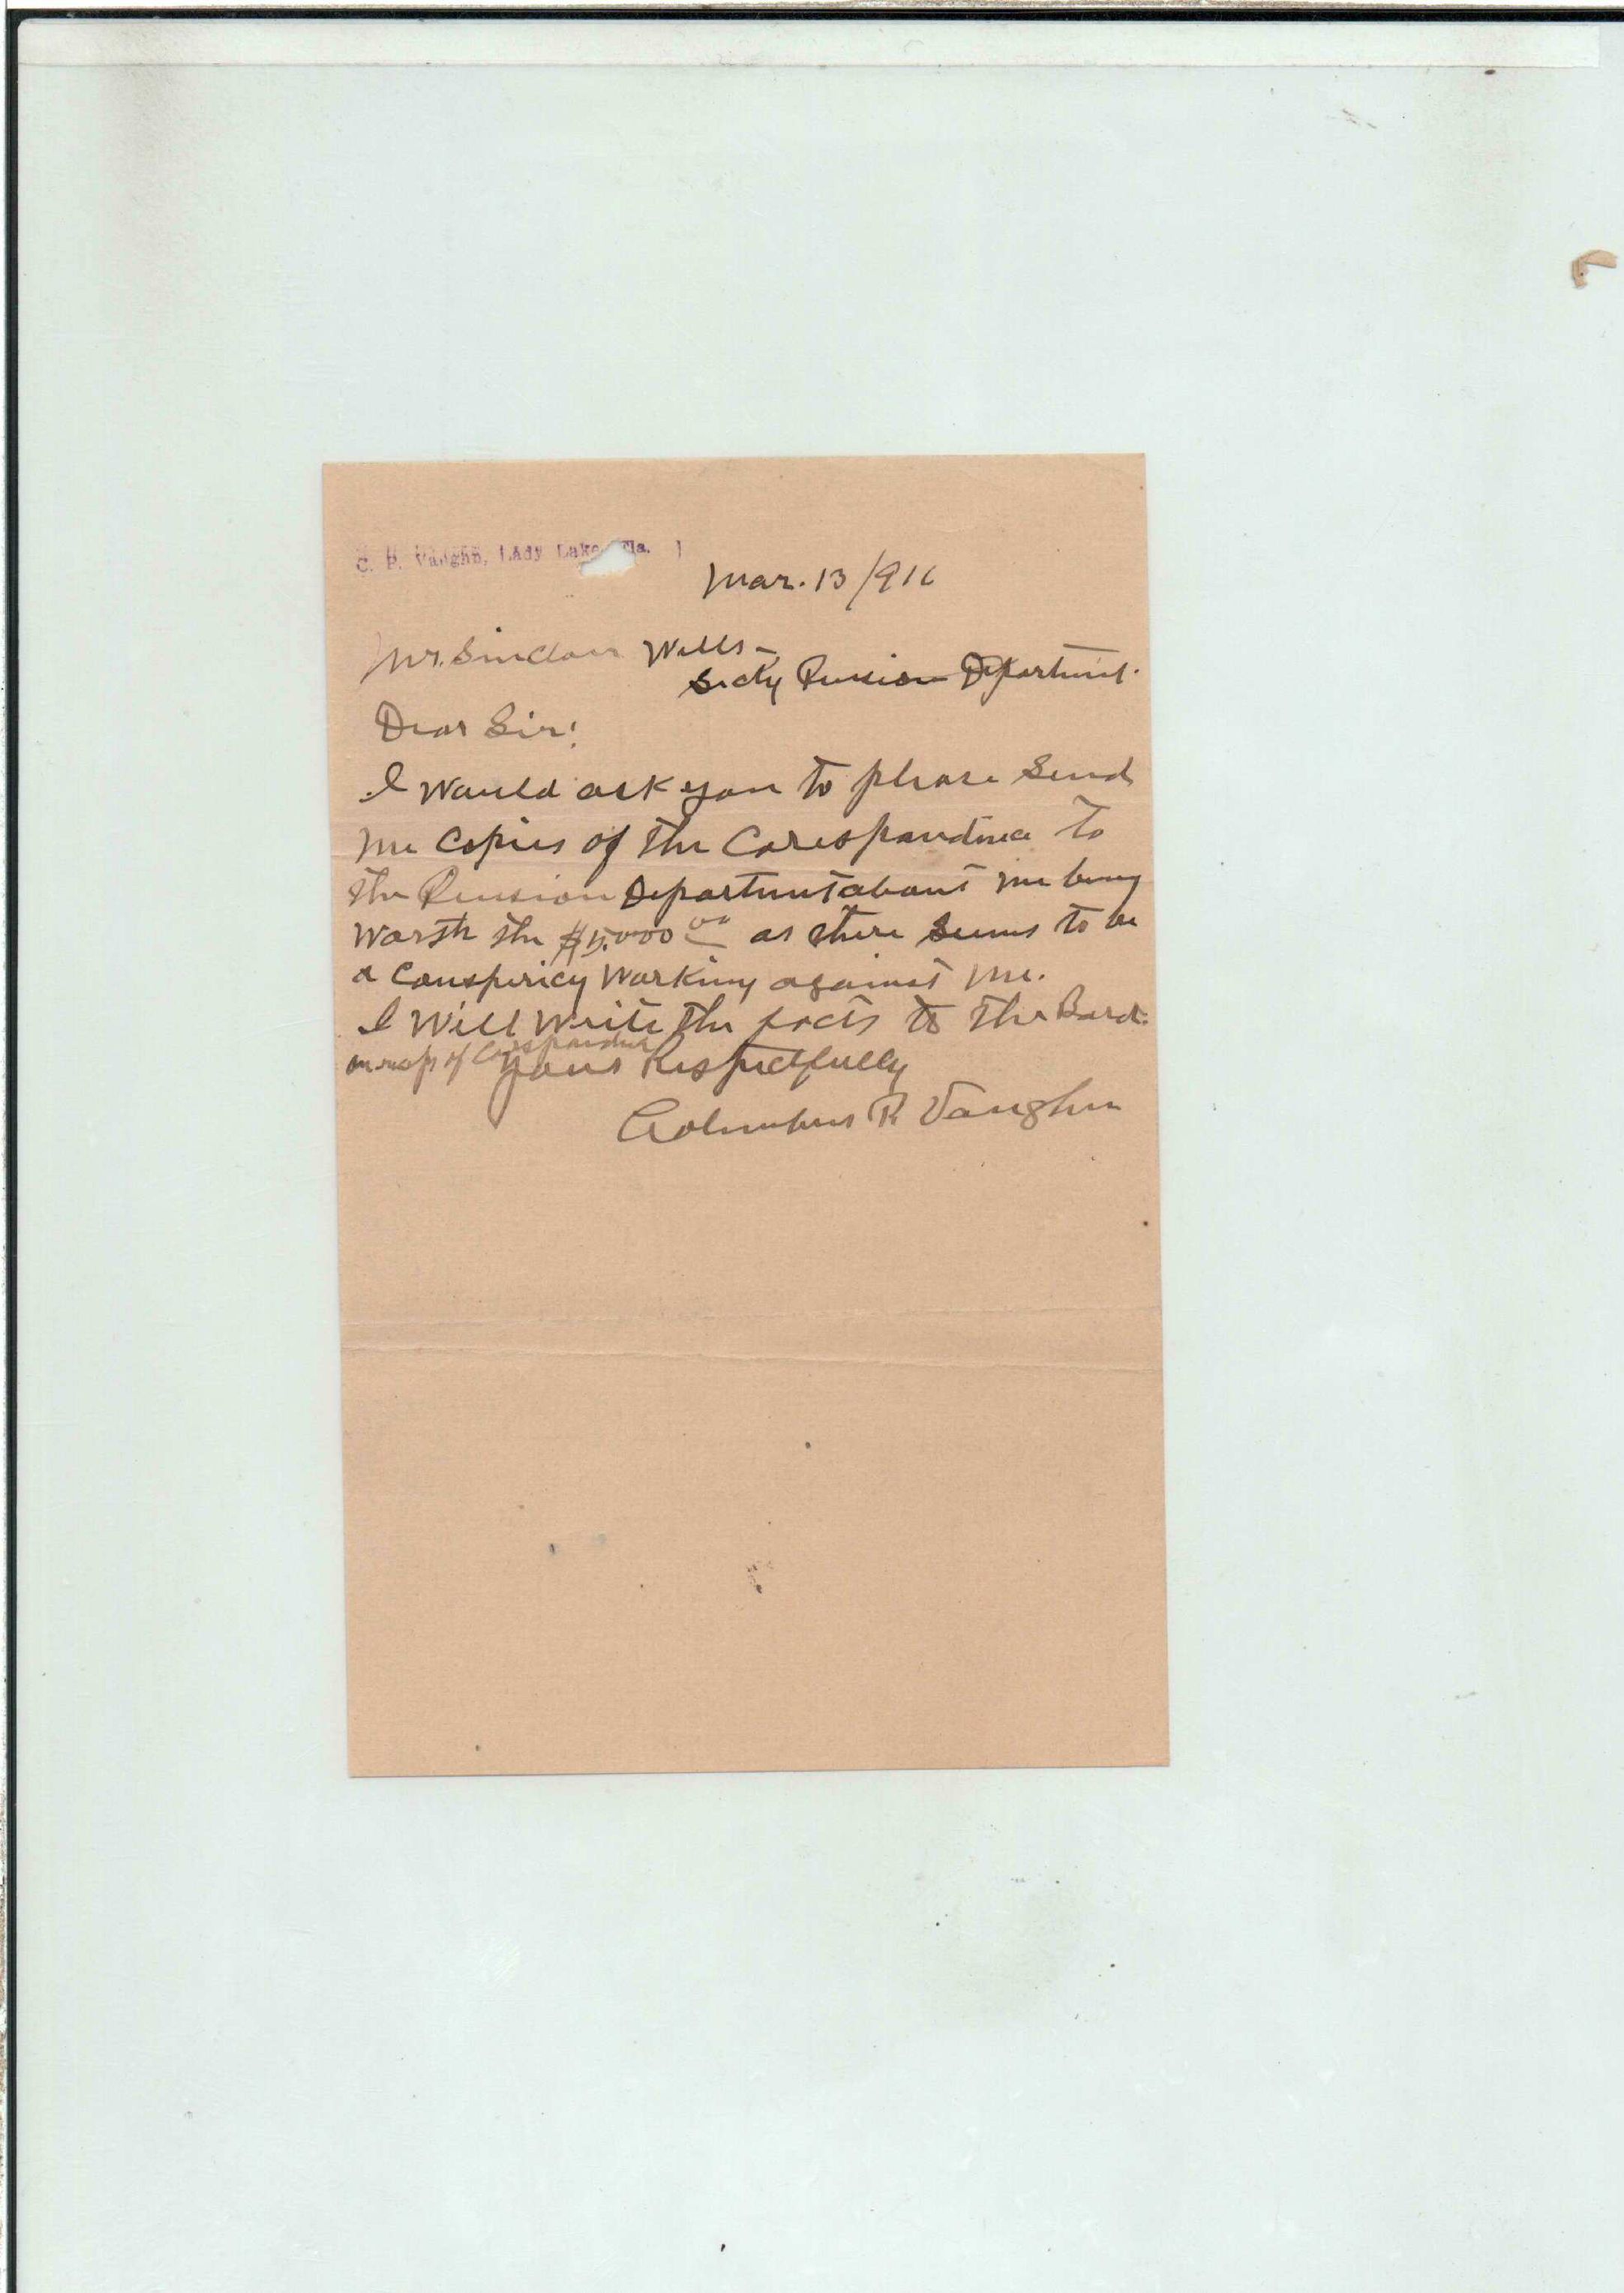 C. R. Vaughn, Lady Lake Fla.
Mar. 13/916
Mr. Sinclair Wells-
Secty Pension Department.
Dear Sir:
I Would ask you to please Send
me Copies of the Corespondence to
the Pension Department about me being
Worth the $5.000 00 as there Seems to be
a Conspiricy Working against me.
I Will Write the facts to the Bord.
on recpt of Corespondence
Yours Respectfully
Columbus R. Vaughn